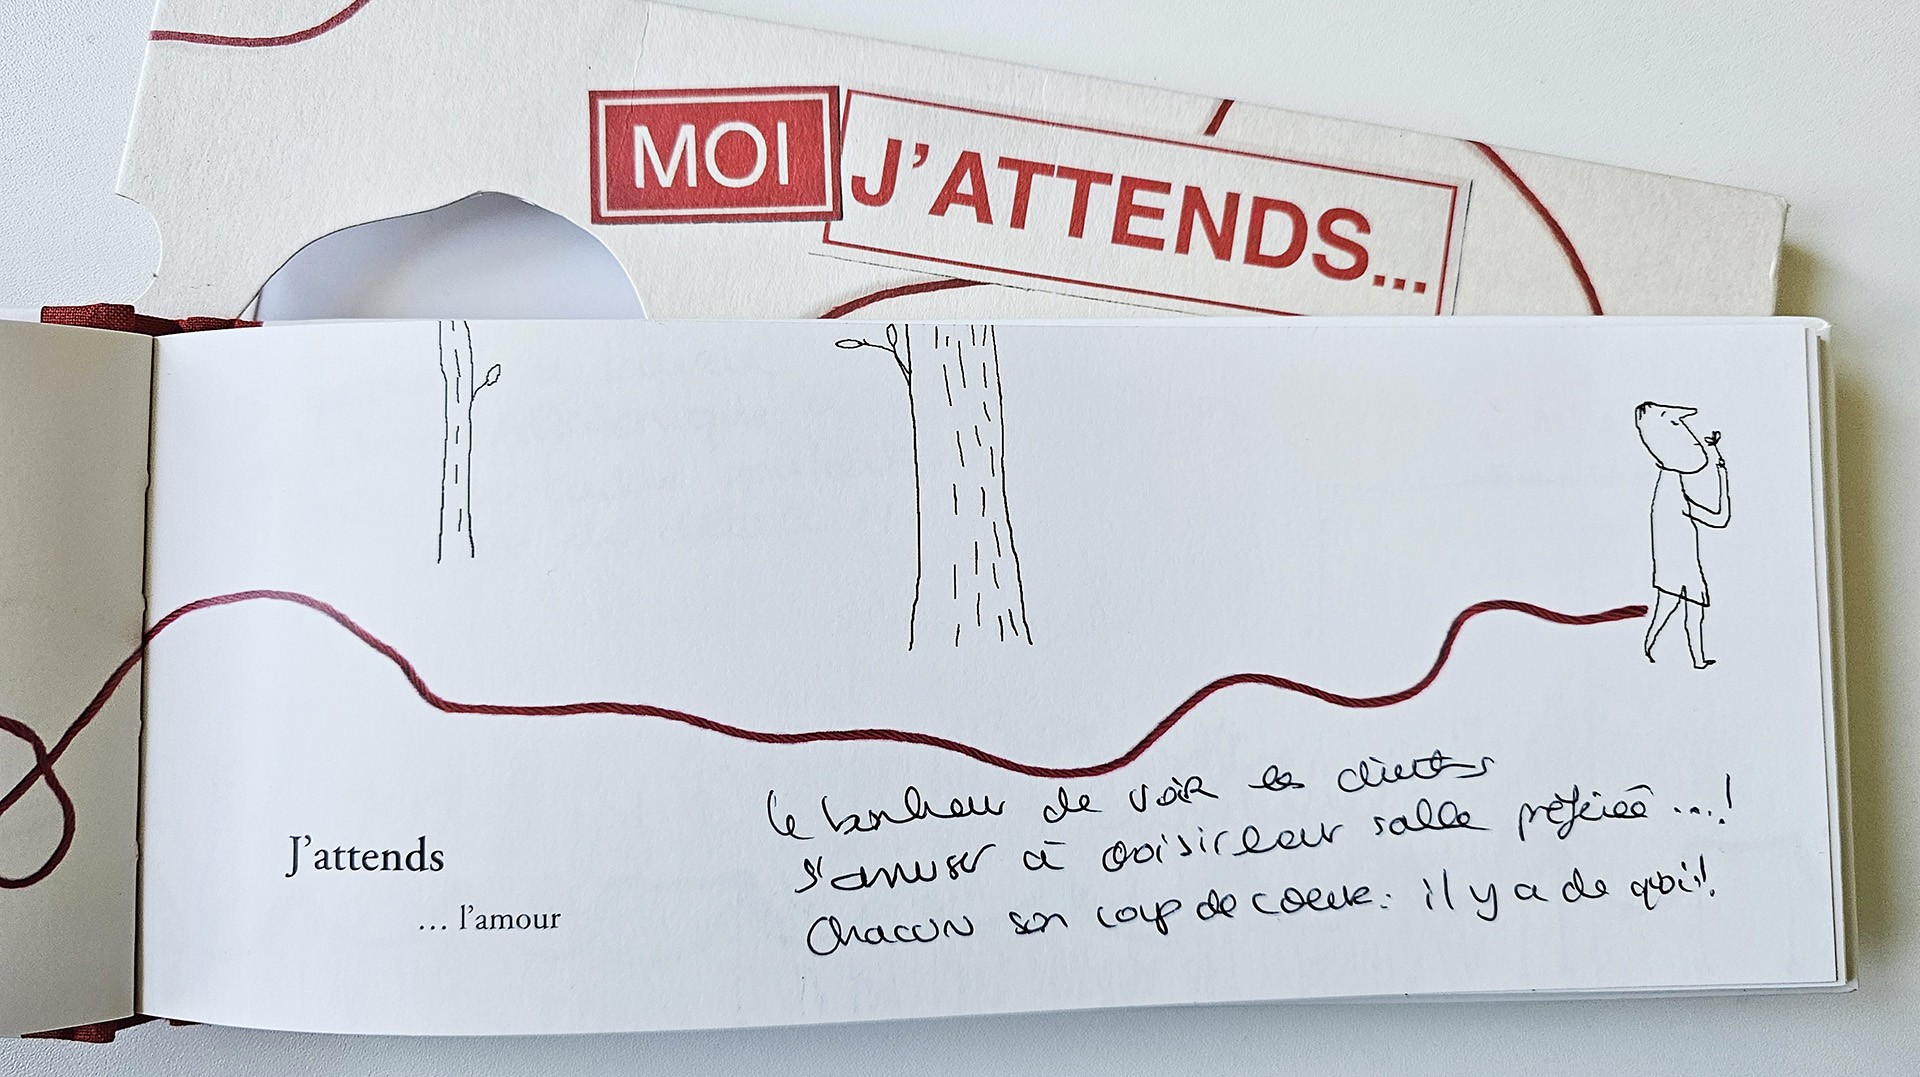 MOI J'ATTENDS...
J'attends
... l'amour
le bonheur de voir les clients
s'amuser à choisir leur salle préférée ...!
Chacun son coup de coeur : il y a de quoi !